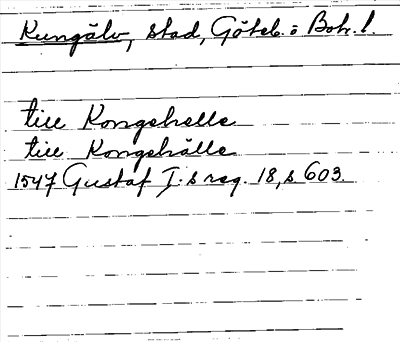 Kungälv, stad, Göteb. o Boh. l.
till Kongehelle
till Kongehälle
1547 Gustaf I:s reg. 18, s 603.